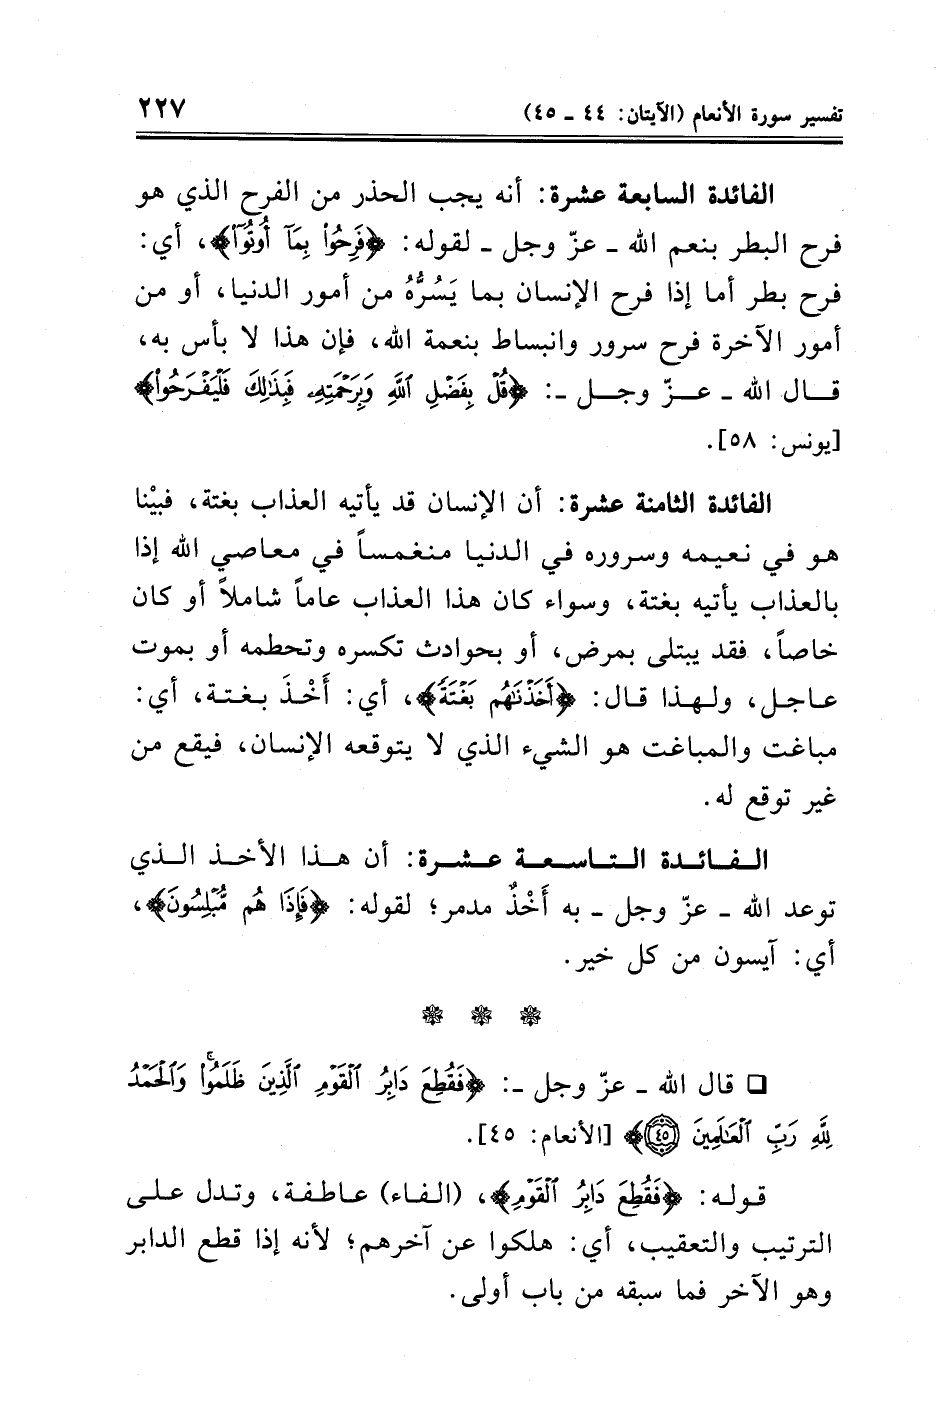 تفسير سورة الأنعام (الآيتان: ٤٤ ـ ٤٥)
٢٢٧
الفائدة السابعة عشرة: أنه يجب الحذر من الفرح الذي هو
فرح البطر بنعم الله ـ عزّ وجل ـ لقوله: ﴿فَرِحُوا۟ بِمَآ أُوتُوٓا۟﴾، أي:
فرح بطر أما إذا فرح الإنسان بما يَسُرُّهُ من أمور الدنيا، أو من
أمور الآخرة فرح سرور وانبساط بنعمة الله، فإن هذا لا بأس به،
قال الله ـ عزّ وجل ـ: ﴿قُلْ بِفَضْلِ ٱللَّهِ وَبِرَحْمَتِهِۦ فَبِذَٰلِكَ فَلْيَفْرَحُوا۟﴾
[يونس: ٥٨].
الفائدة الثامنة عشرة: أن الإنسان قد يأتيه العذاب بغتة، فبيْنا
هو في نعيمه وسروره في الدنيا منغمساً في معاصي الله إذا
بالعذاب يأتيه بغتة، وسواء كان هذا العذاب عاماً شاملاً أو كان
خاصاً، فقد يبتلى بمرض، أو بحوادث تكسره وتحطمه أو بموت
عاجل، ولهذا قال: ﴿أَخَذْنَٰهُم بَغْتَةً﴾، أي: أَخْذَ بغتة، أي:
مباغت والمباغت هو الشيء الذي لا يتوقعه الإنسان، فيقع من
غير توقع له.
الفائدة التاسعة عشرة: أن هذا الأخذ الذي
توعد الله ـ عزّ وجل ـ به أَخْذٌ مدمر؛ لقوله: ﴿فَإِذَا هُم مُّبْلِسُونَ﴾،
أي: آيسون من كل خير.
❁ ❁ ❁
❑ قال الله ـ عزّ وجل ـ: ﴿فَقُطِعَ دَابِرُ ٱلْقَوْمِ ٱلَّذِينَ ظَلَمُوا۟ ۚ وَٱلْحَمْدُ
لِلَّهِ رَبِّ ٱلْعَٰلَمِينَ ٤٥﴾ [الأنعام: ٤٥].
قوله: ﴿فَقُطِعَ دَابِرُ ٱلْقَوْمِ﴾، (الفاء) عاطفة، وتدل على
الترتيب والتعقيب، أي: هلكوا عن آخرهم؛ لأنه إذا قطع الدابر
وهو الآخر فما سبقه من باب أولى.